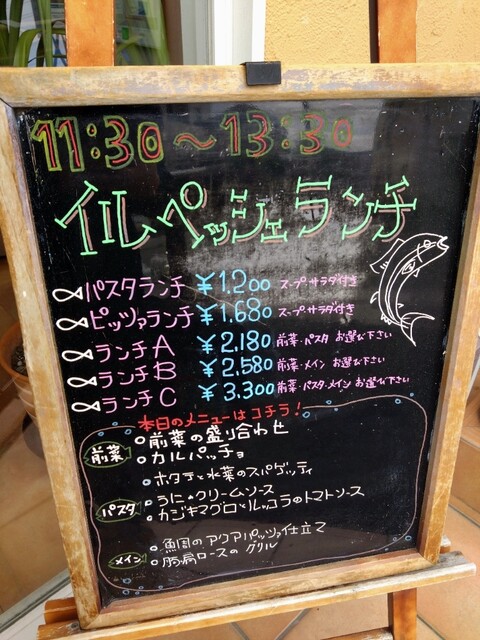 11:30～13:30
イルペッシェランチ
パスタランチ ￥1.200 スープサラダ付き
ピッツァランチ ￥1.680 スープサラダ付き
ランチA ￥2.180 前菜・パスタ お選び下さい
ランチB ￥2.580 前菜・メイン お選び下さい
ランチC ￥3.300 前菜・パスタ・メイン お選び下さい
本日のメニューはコチラ！
前菜
前菜の盛り合わせ
カルパッチョ
パスタ
ホタテと水菜のスパゲッティ
うにのクリームソース
カジキマグロとルッコラのトマトソース
メイン
魚介のアクアパッツァ仕立て
豚肩ロースのグリル